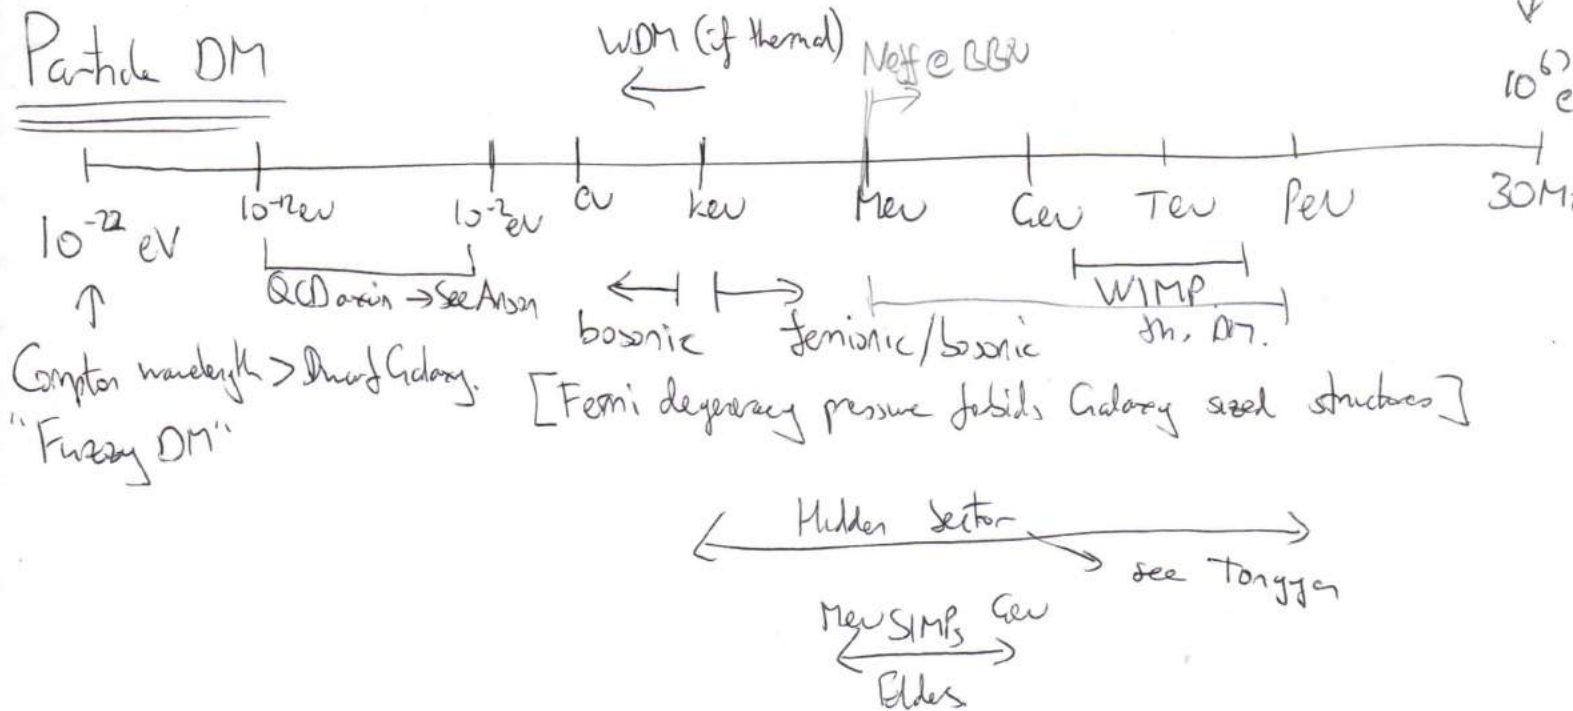 Particle DM
WDM (if thermal)
Neff @ BBN
10^67 e
10^-22 eV
10^-12 eV
10^-2 eV
eV
keV
MeV
GeV
TeV
PeV
30M
QCD axion → See Anson
bosonic
fermionic/bosonic
WIMP
th. DM.
Compton wavelength > Dwarf Galaxy.
"Fuzzy DM"
[Fermi degeneracy pressure forbids Galaxy sized structures]
Hidden Sector
see Tongyan
MeV SIMPs GeV
Elders